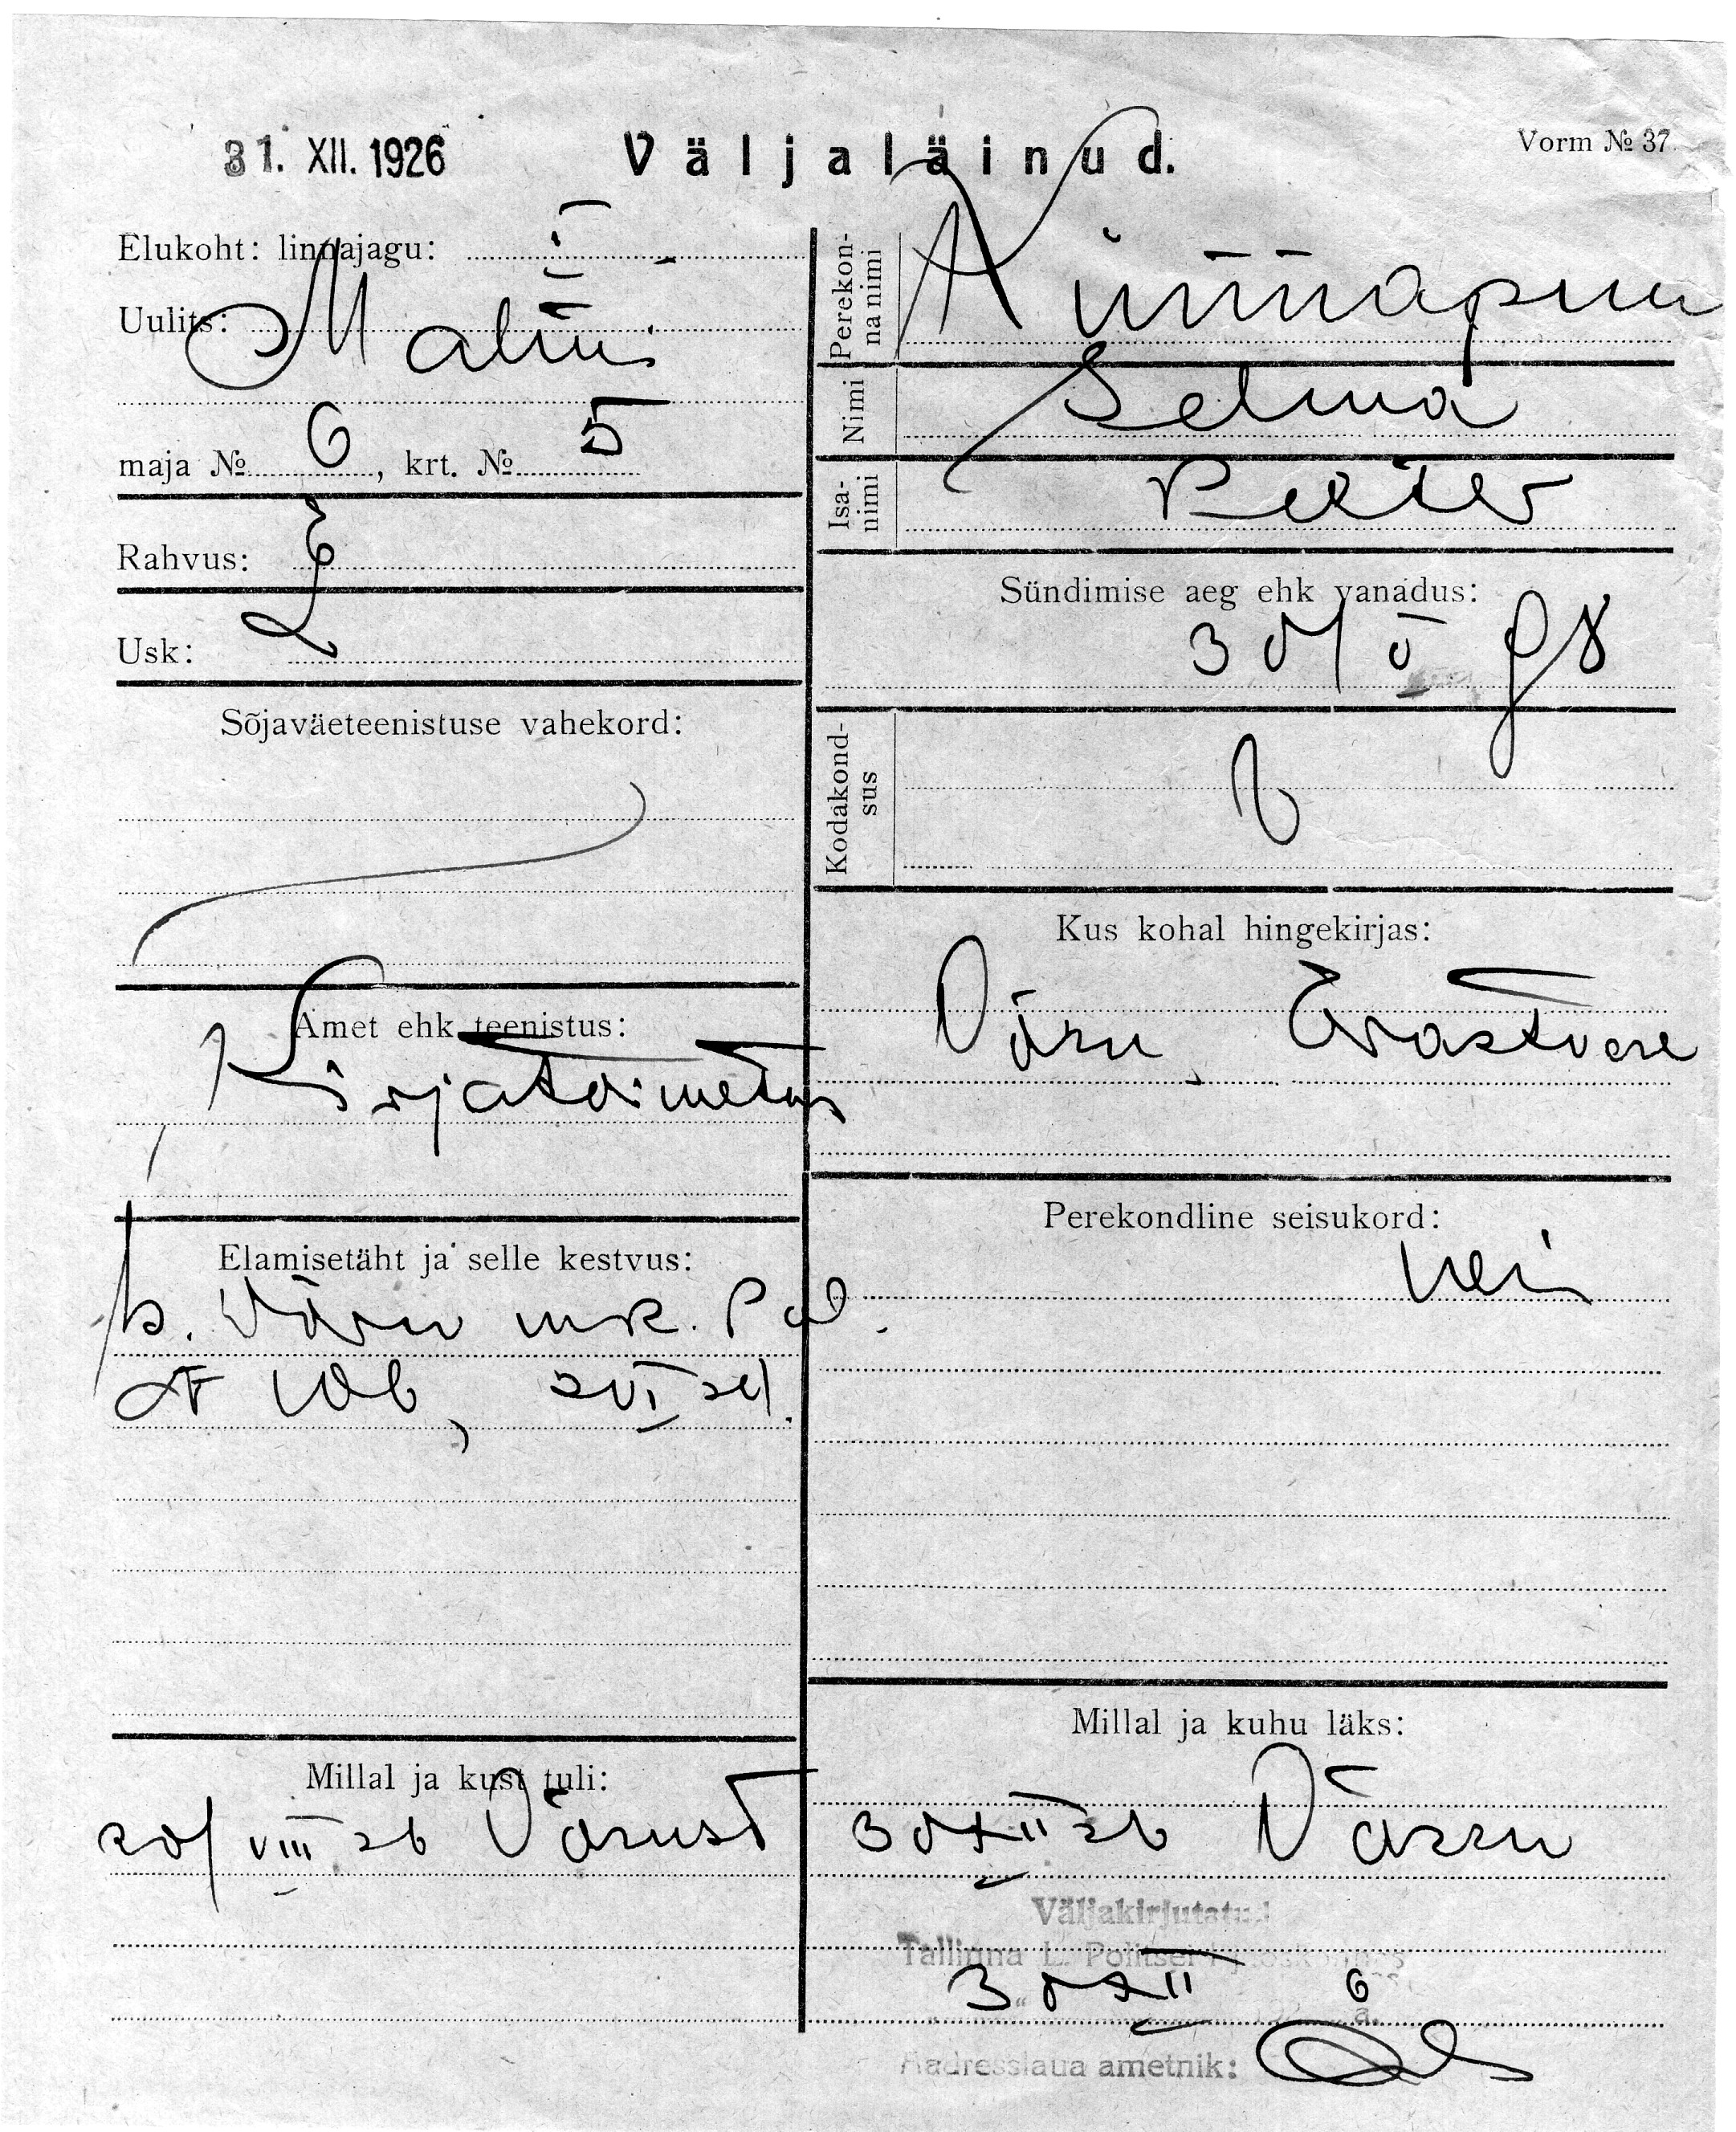 31. XII. 1926
Väljaläinud.
Vorm № 37.
Elukoht: linnajagu: I
Uulits:
maja № 6, krt. № 5
Rahvus: E
Usk: L
Sõjaväeteenistuse vahekord:
Amet ehk teenistus:
Kirjatoimetus
Elamisetäht ja selle kestvus:
b. Võru mk. Pol.
Millal ja kust tuli:
20/VIII 26 Võrust
Perekonna nimi
Künnapuu
Nimi
Selma
Isanimi
Peeter
Sündimise aeg ehk vanadus:
30/V 98
Kodakondsus
Kus kohal hingekirjas:
Võru Erastvere
Perekondline seisukord:
Millal ja kuhu läks:
30 XII 26 Võrru
Väljakirjutatud
Tallinna L. Politsei
30 XII 6
a.
Aadresslaua ametnik: